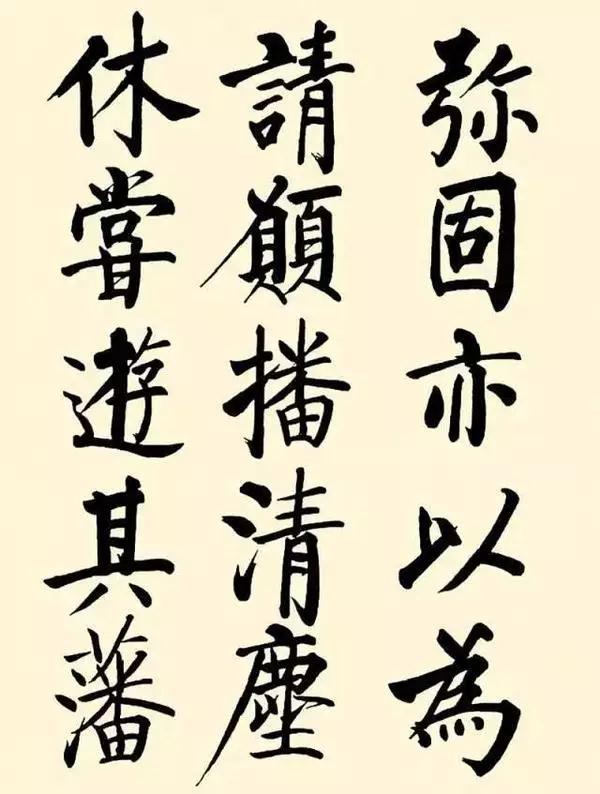 弥固亦以為
請願播清塵
休嘗遊其藩